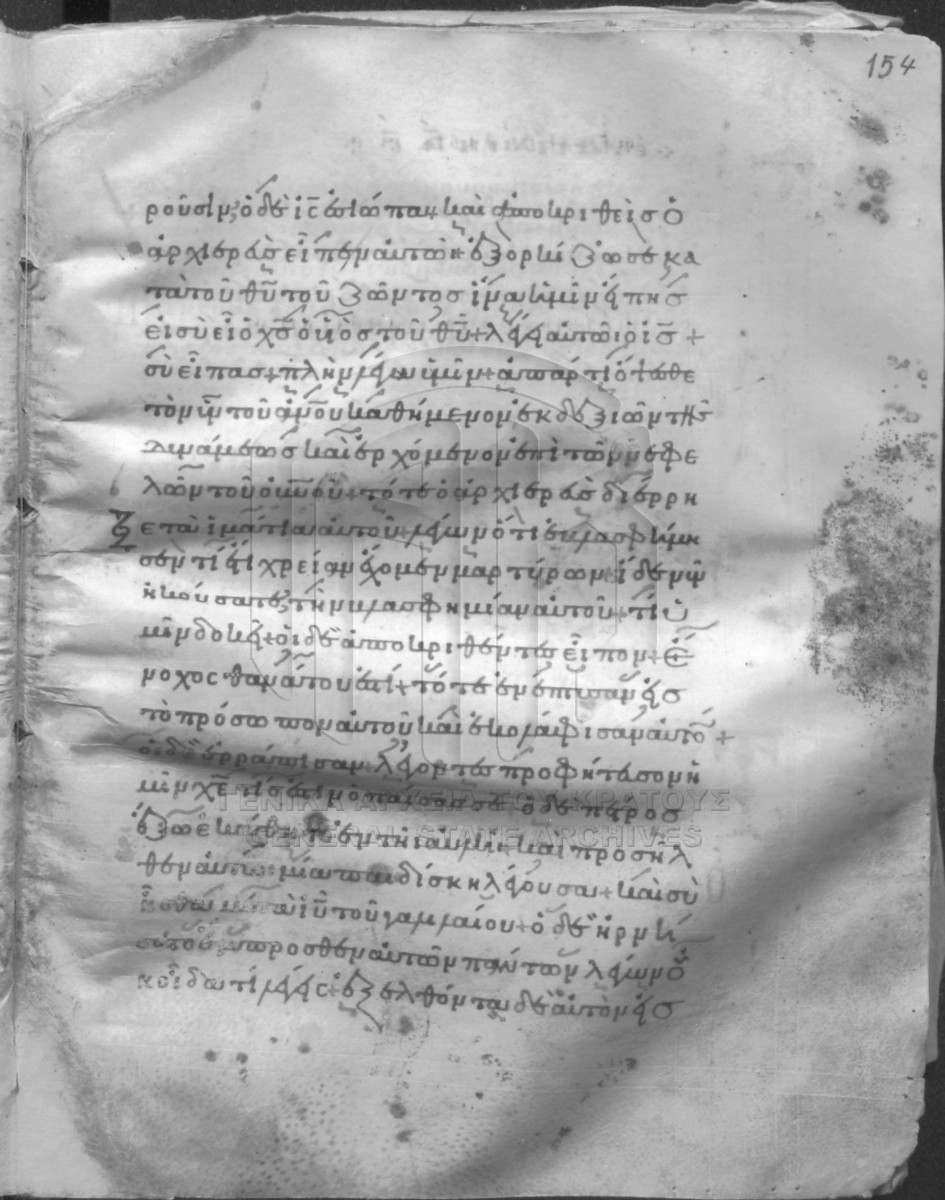 154
ροῦσιν; ὁ δὲ ἰς ἐσιώπα + καὶ ἀποκριθεὶς ὁ
ἀρχιερεὺς εἶπεν αὐτῶ + ἐξορκίζω σε κα
τὰ τοῦ θυ τοῦ ζῶντος ἵνα ἡμῖν εἴπης
εἰ σὺ εἶ ὁ χς ὁ υἱὸς τοῦ θυ + λέγει αὐτῶ ὁ ις +
σὺ εἶπας + πλὴν λέγω ὑμῖν + ἀπάρτι ὄψεσθε
τὸν υν τοῦ ανου καθήμενον ἐκ δεξιῶν τῆς
δυνάμεως καὶ ἐρχόμενον ἐπὶ τῶν νεφε
λῶν τοῦ οὐνου + τότε ὁ ἀρχιερεὺς διέρρη
ξε τὰ ἱμάτια αὐτοῦ + λέγων ὅτι ἐβλασφήμη
σεν τί ἔτι χρείαν ἔχομεν μαρτύρων + ἴδε νῦν
ἠκούσατε, τὴν βλασφημίαν αὐτοῦ + τί ὑ
μῖν δοκεῖ + οἱ δὲ ἀποκριθέντες εἶπον + ἔ
νοχος θανάτου ἐστί + τότε ἐνέπτυσαν εἰς
τὸ πρόσωπον αὐτοῦ καὶ ἐκολάφισαν αὐτὸν +
οἱ δὲ ἐρράπισαν λέγοντες προφήτευσον ἡ
μῖν χε τίς ἐστιν ὁ παίσας σε + ὁ δὲ πέτρος
ἔξω ἐκάθητο ἐν τῆ αὐλῆ + καὶ προσῆλ
θεν αὐτῶ μία παιδίσκη λέγουσα + καὶ σὺ
ἦσθα μετὰ ιυ τοῦ γαλιλαίου + ὁ δὲ ἠρνή
σατο ἔμπροσθεν αὐτῶν πάντων λέγων οὐ
κ οἶδα τί λέγεις + ἐξελθόντα δὲ αὐτὸν εἰς
ΓΕΝΙΚΑ ΑΡΧΕΙΑ ΤΟΥ ΚΡΑΤΟΥΣ
GENERAL STATE ARCHIVES